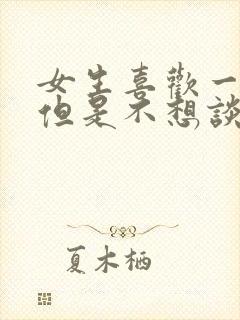 女生喜歡一
但是不想談
夏木栖